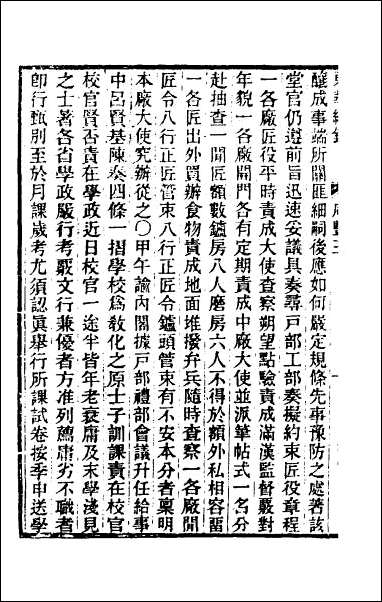 釀成事端所關匪細嗣後應如何嚴定規條先事豫防之處著該
堂官仍遵前旨迅速妥議具奏尋戸部工部奏擬約束匠役章程
一各廠匠役平時責成大使查察朔望點驗責成滿漢監督覈對
年貌一各廠開門各有定期責成中廠大使並派筆帖式一名分
赴抽查一開匠額數鑪房八人磨房六人不得於額外私相容留
一各匠出外買辦食物責成地面堆撥弁兵隨時查察一各廠開
匠令八行正匠管束八行正匠令鑪頭管束有不安本分者稟明
本廠大使究辦從之〇甲午諭內閣據戸部禮部會議升任給事
中呂賢基陳奏四條一摺學校爲敎化之原士子訓課責在校官
校官賢否責在學政近日校官一途半皆年老衰庸及末學淺見
之士著各省學政嚴行考覈文行兼優者方准列薦庸劣不職者
卽行甄別至於月課歲考尤須認眞舉行所課試卷按季申送學